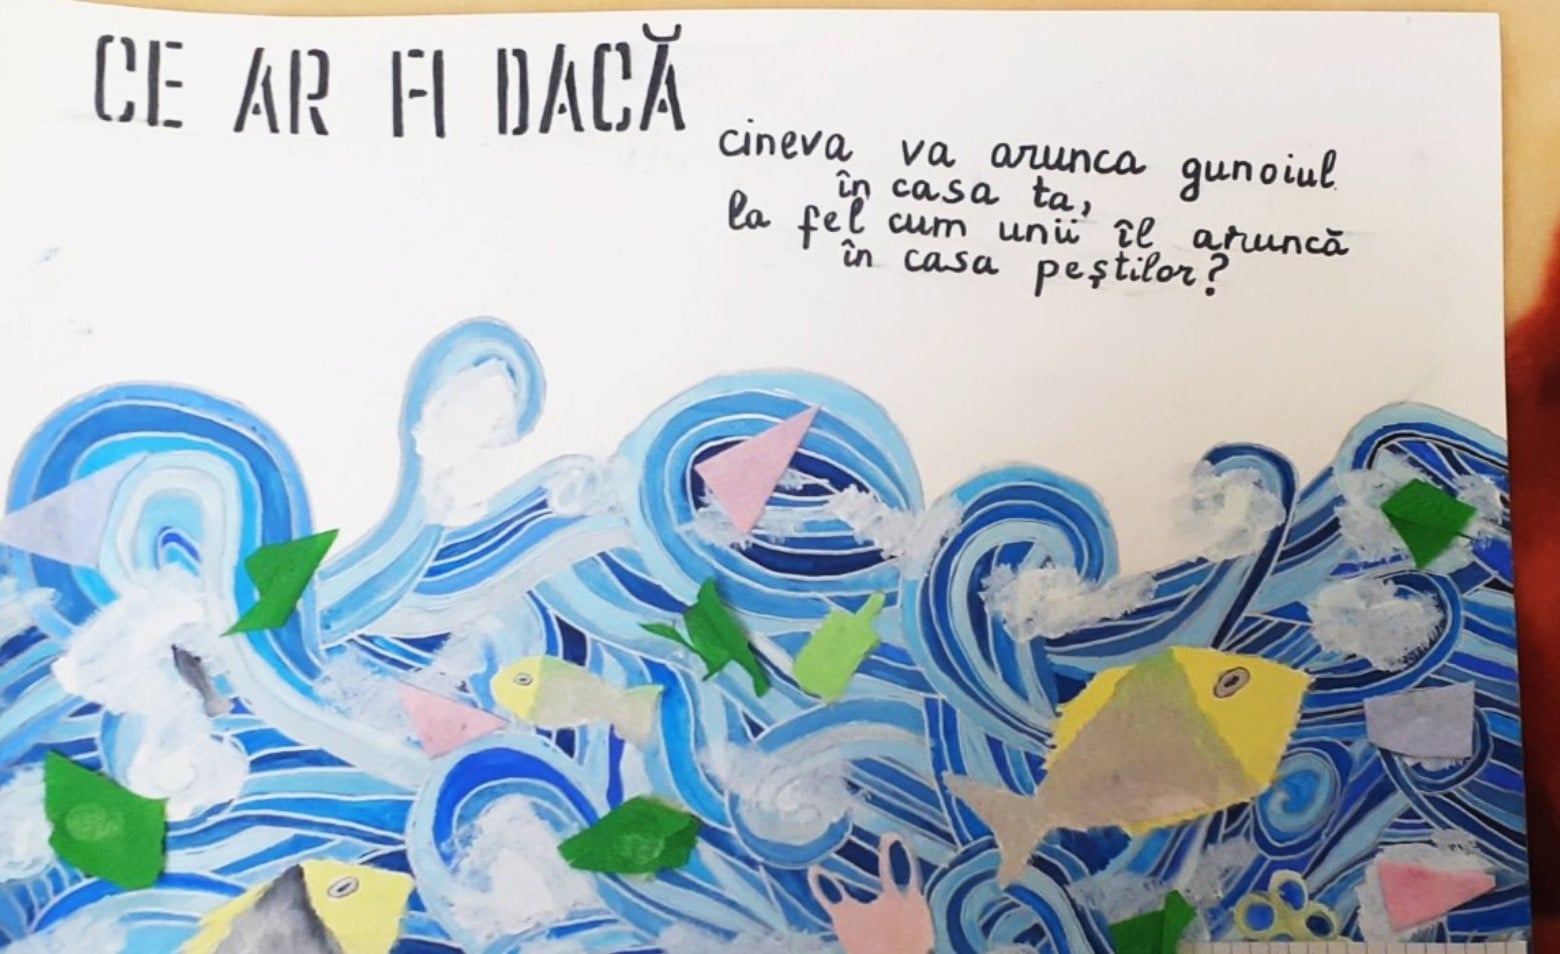 CE AR FI DACĂ
cineva va arunca gunoiul
în casa ta,
la fel cum unii îl aruncă
în casa peștilor?